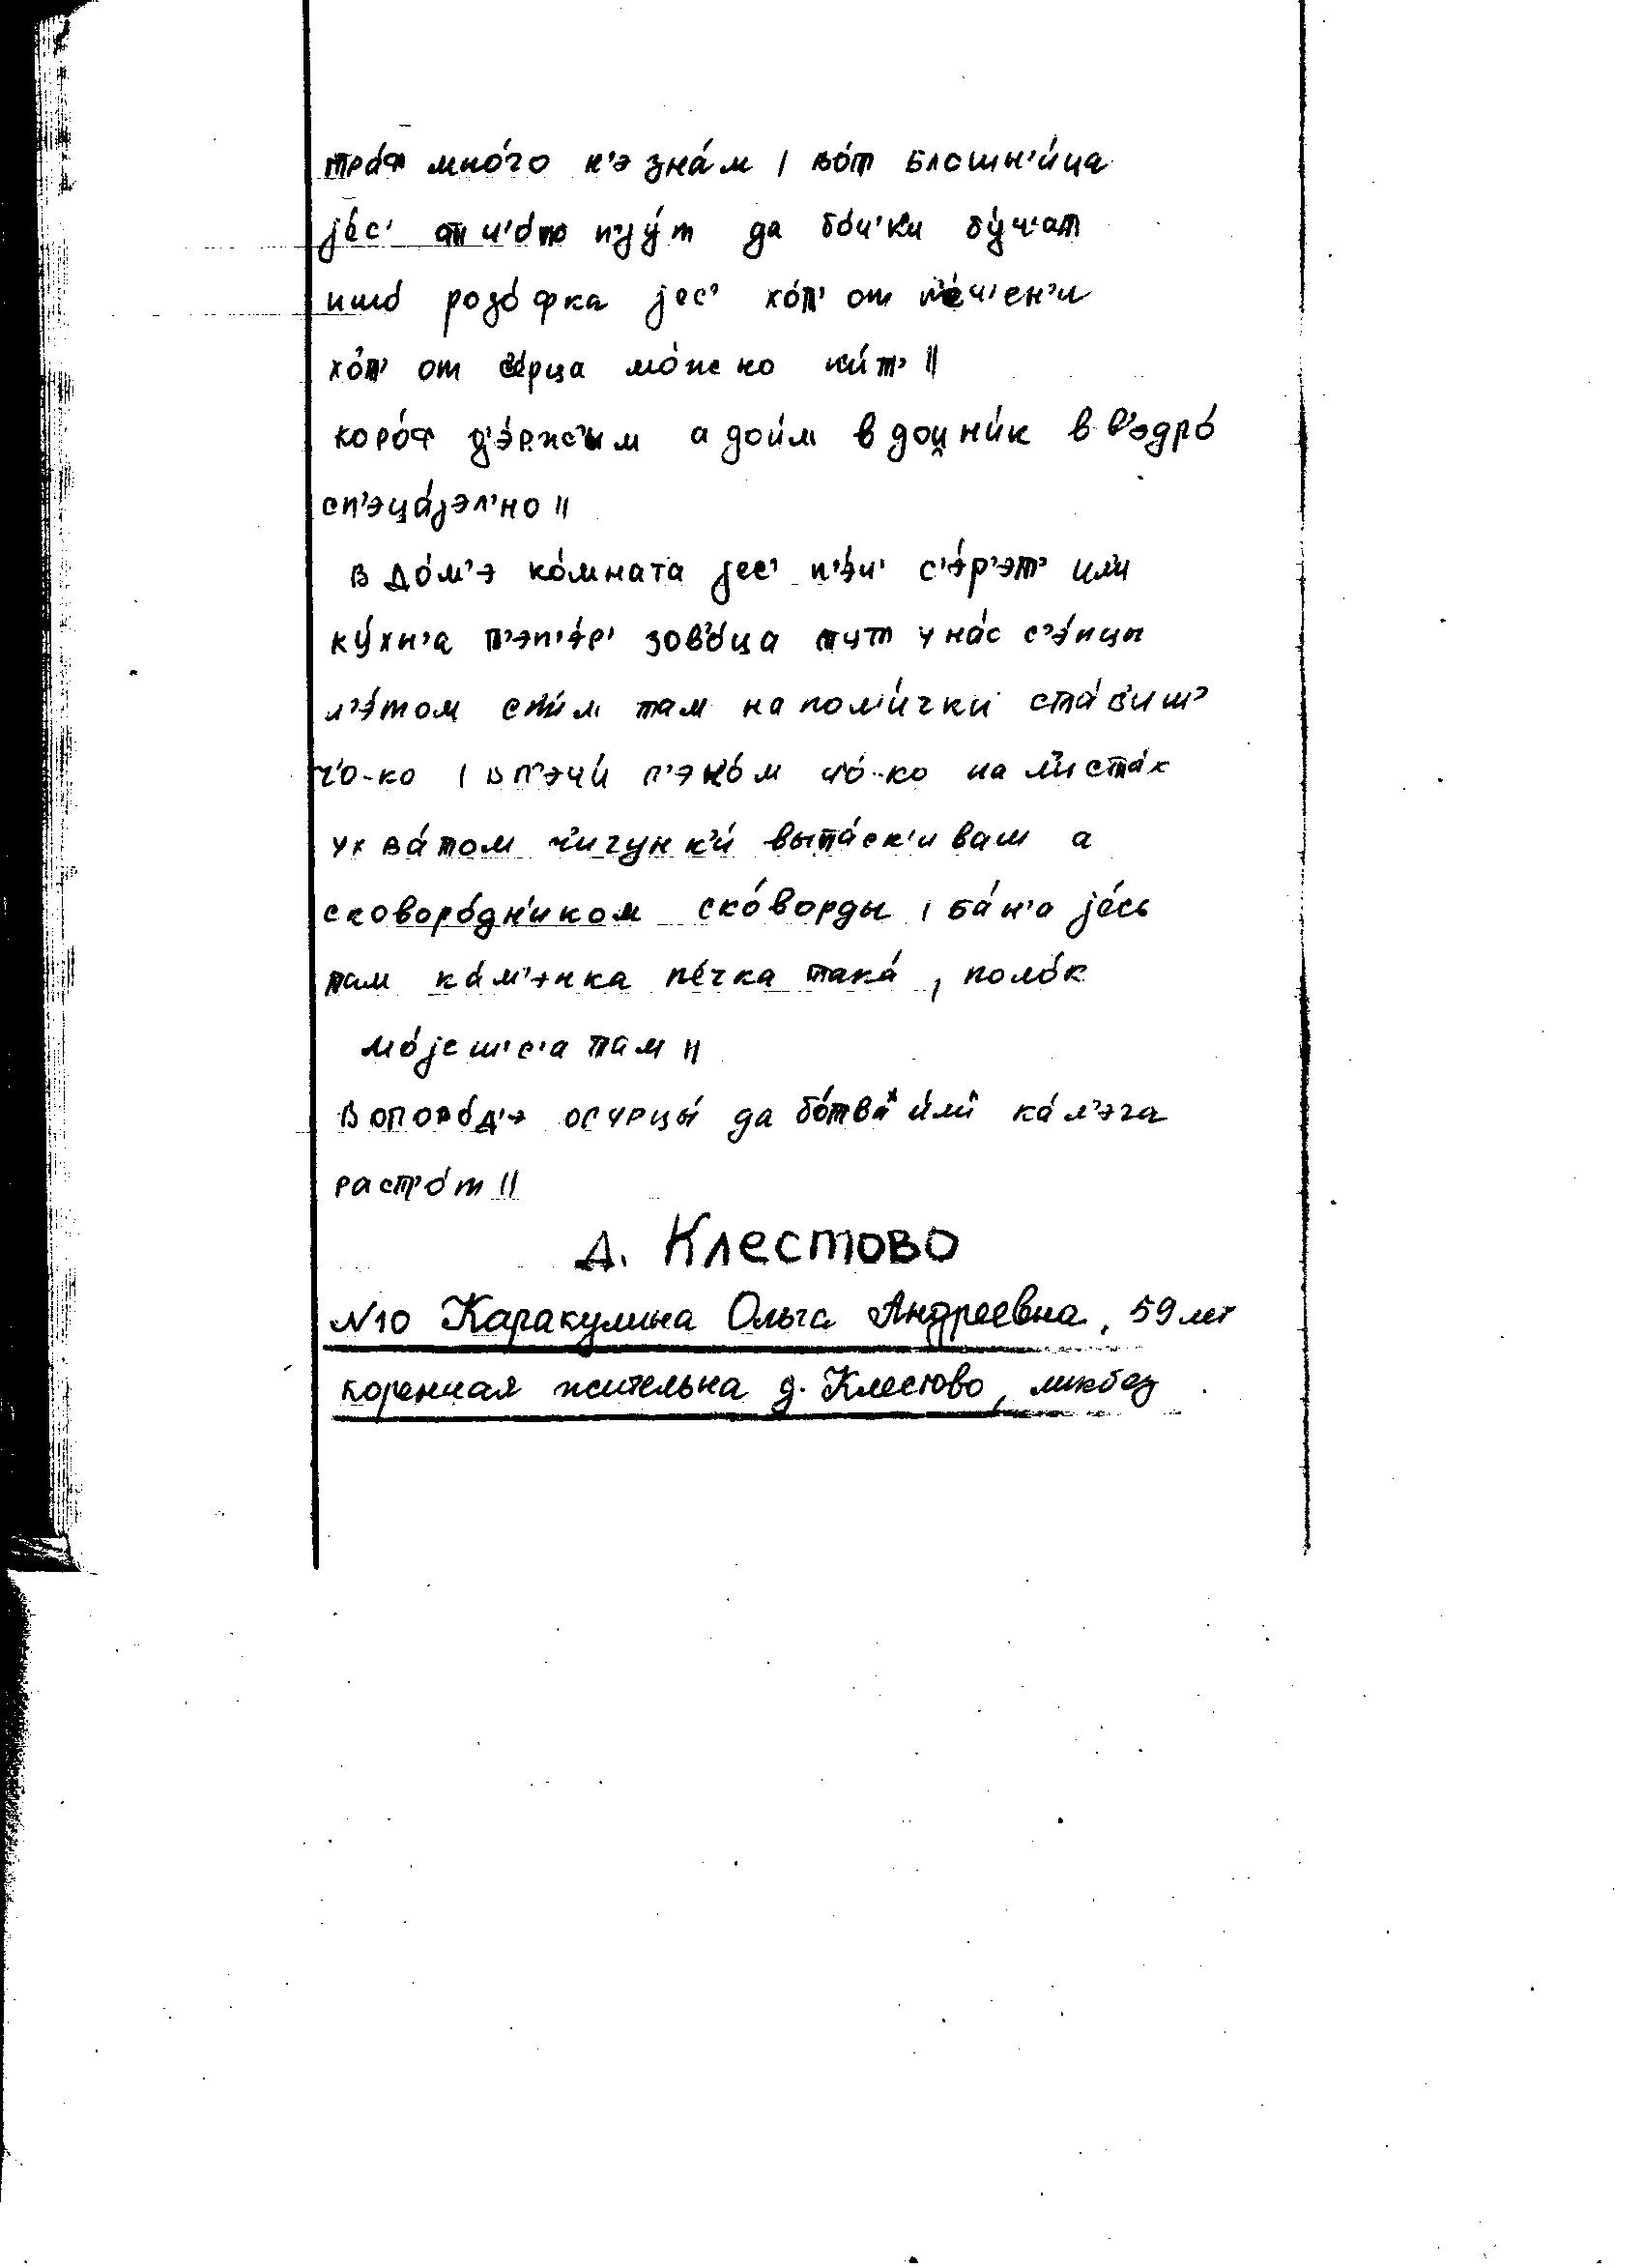 тра́ф мно́го н'э зна́м | во́т блошн'и́ца
jе́с' от ч'о́то пjу́т да бо́ч'ки бу́ч'ат
ишо́ розо́фка jес' хо́т' от п'е́ч'ен'и
хо́т' от се́рца мо́жно пи́т' ||
коро́ф д'э́ржым а дои́м в дои̯ни́к в в'эдро́
сп'эца́jэл'но ||
в до́м'э ко́мната jес' п'э́ч' с'э́р'эт' или
ку́хн'а т'эп'э́р' зов'о́ца тут у нас с'э́нцы
л'э́том сп'и́м там на пол'и́чки ста́в'иш'
ч'о-ко | в п'эчи́ п'эко́м ч'о́-ко на л'иста́х
ухва́том ч'игунк'и́ выта́ск'иваш а
сковоро́дн'иком ско́ворды | ба́н'а jе́сь
там ка́м'энка пе́чка така́, поло́к
мо́jеш'с'а там ||
в огоро́д'э огурцы́ да бо́тва и́ли ка́л'эга
раст'о́т ||
д. Клестово
N10 Каракулина Ольга Андреевна, 59 лет
коренная жительна д. Клестово, ликбез